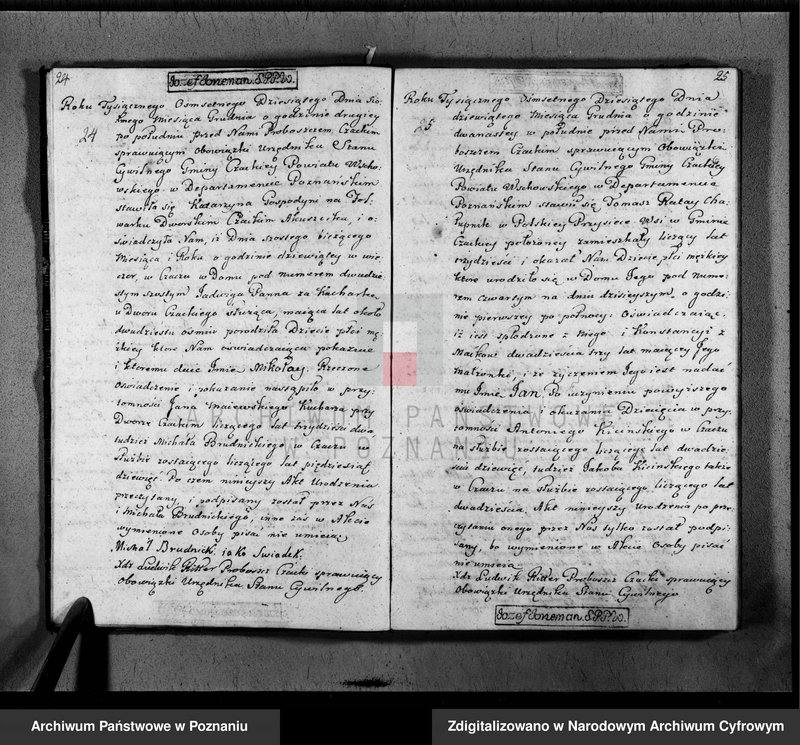 24
Jozef Joneman. S.P.P.W.
Roku Tysiącznego Osmsetnego Dziesiątego Dnia Sio-
dmego Miesiąca Grudnia o godzinie drugiey
24
po południu przed Nami Proboszczem Czackim
sprawuiącym Obowiązki Urzędnika Stanu
Cywilnego Gminy Czackiey Powiatu Wscho-
wskiego w Departamencie Poznańskim
stawiła się Katarzyna Gospodyni na Fol-
warku Dworskim Czackim Akuszerka, i o-
świadczyła Nam, iż Dnia szostego bieżącego
Miesiąca i Roku o godzinie dziewiątey w wie-
czor, w Czaczu w Domu pod numerem dwudzie-
stym szostym Jadwiga Panna za Kucharkę
u Dworu Czackiego służąca, maiąca lat około
dwadziestu osmiu porodziła Dziecie płci mę-
zkiey ktore Nam oswiadczaiąca pokazuie
i ktoremu daie Imie Mikołay. Rzeczone
oświadczenie i pokazanie nastąpiło w przy-
tomności Jana Kuchana przy
Dworze Czackim liczącego lat trzydzieści dwa
tudziez Michała Brudnickiego w Czaczu w
służbie zostaiącego liczącego lat piędziesiąt
dziewięć. Po czem ninieyszy Akt Urodzenia
przeczytany, i podpisany został przez Nas
i Michała Brudnickiego, inne zaś w Akcie
wymienione Osoby pisać nie umieią.
Michał Brudnicki iako Swiadek.
Xdz Ludwik Ritter Proboszcz Czacki sprawuiący
Obowiązki Urzędnika Stanu Cywilnego.
25
Roku Tysiącznego Osmsetnego Dziesiątego Dnia
dziewiątego Miesiąca Grudnia o godzinie
25
dwanastey w południe przed Nami Pro-
boszczem Czackim sprawuiącym Obowiązki
Urzędnika Stanu Cywilnego Gminy Czackiey
Powiatu Wschowskiego w Departamencie
Poznańskim stawił się Tomasz Ratay Cha-
łupnik w Polskiey Przysiece Wsi w Gminie
Czackiey położoney zamieszkały liczący lat
trzydzieści i okazał Nam Dziecię płci męzkiey
ktore urodziło się w Domu Jego pod nume-
rem czwartym na dniu dzisieyszym o godzi-
nie pierwszey po pułnocy; Oświadczaiąc,
iż iest spłodzone z Niego i Konstancyi z
dwadzieścia trzy lat maiącey Jego
małżonki, i że życzeniem Jego iest nadać
mu Imie Jan. Po uczynieniu powyższego
oświadczenia i okazania Dziecięcia w przy-
tomności Antoniego Kicinskiego w Czaczu
na służbie zostaiącego liczącego lat dwadzie-
ścia dziewięć, tudziez Jakoba Kicinskiego także
w Czaczu na służbie zostaiącego liczącego lat
dwadzieścia. Akt ninieyszy Urodzenia po prze-
czytaniu onego przez Nas tylko został podpi-
sany, bo wymienione w Akcie Osoby pisać
nie umieią.
Xdz Ludwik Ritter Proboszcz Czacki sprawuiący
Obowiązki Urzędnika Stanu Cywilnego
Jozef Joneman. S.P.P.W.
ARCHIWUM PAŃSTWOWE
W POZNANIU
Archiwum Państwowe w Poznaniu
Zdigitalizowano w Narodowym Archiwum Cyfrowym